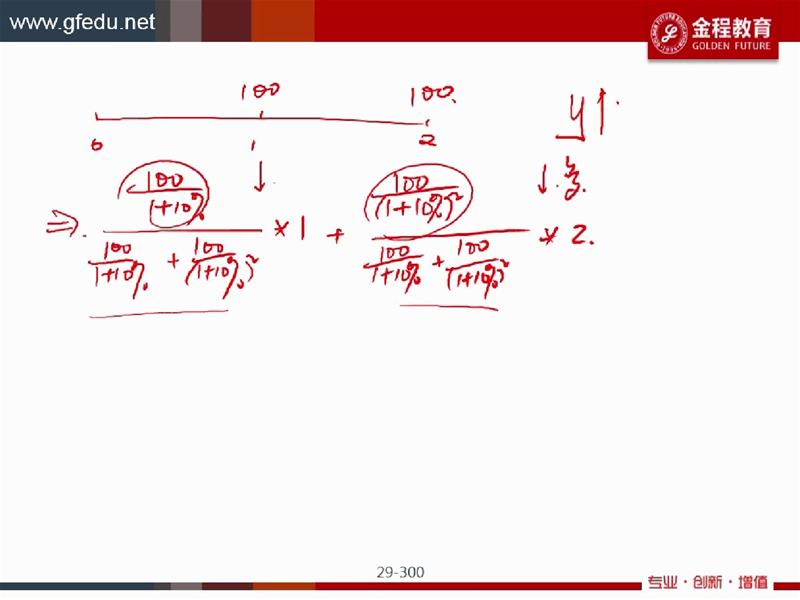 www.gfedu.net
金程教育
GOLDEN FUTURE
100 100.
0 1 2
y↑
↓
⇒ \frac{\frac{100}{1+10%}}{\frac{100}{1+10%} + \frac{100}{(1+10%)^2}} * 1 + \frac{\frac{100}{(1+10%)^2}}{\frac{100}{1+10%} + \frac{100}{(1+10%)^2}} * 2.
29-300
专业·创新·增值